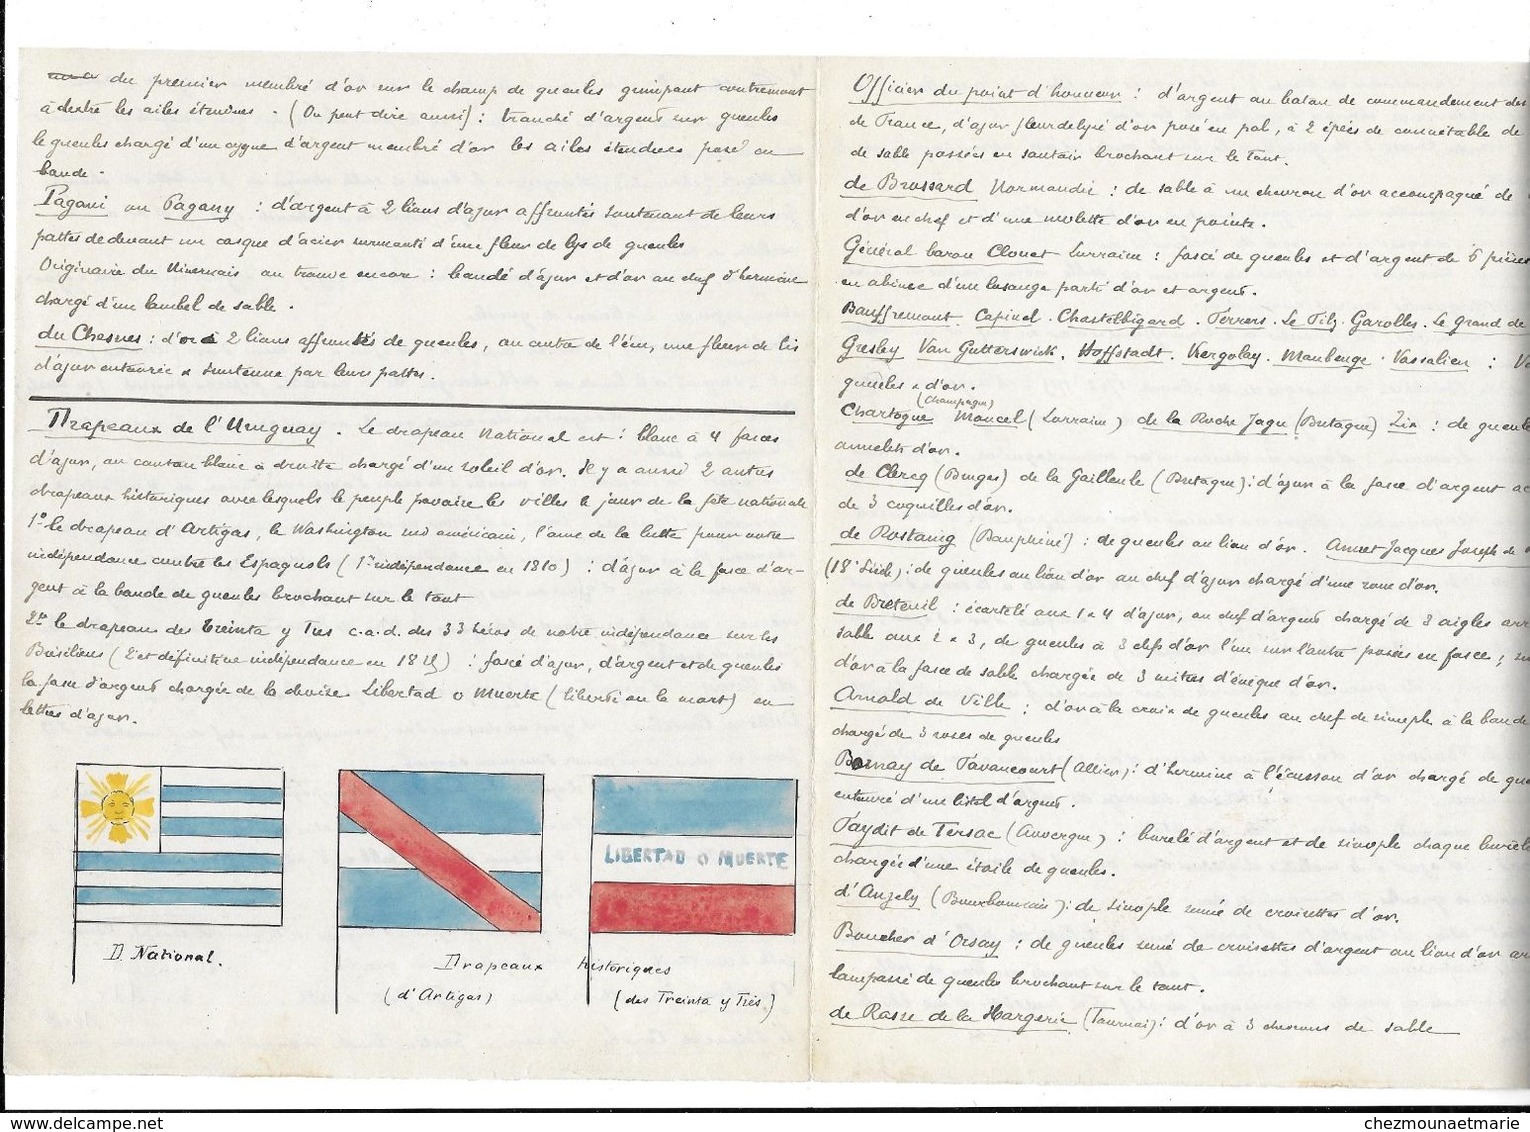 du premier membré d'or sur le champ de gueules grimpant contremont
à dextre les ailes étendues. (On peut dire aussi) : tranché d'argent sur gueules
le gueules chargé d'un cygne d'argent membré d'or les ailes étendues posé en
bande.
Pagani ou Pagany : d'argent à 2 lions d'azur affrontés soutenant de leurs
pattes de devant un casque d'acier surmonté d'une fleur de lys de gueules
Originaire du Nivernais on trouve encore : bandé d'azur et d'or au chef d'hermine
chargé d'un lambel de sable.
du Chesnes : d'or à 2 lions affrontés de gueules, au centre de l'écu, une fleur de lis
d'azur entourée & soutenue par leurs pattes.
Drapeaux de l'Uruguay. Le drapeau National est : blanc à 4 faces
d'azur, au canton blanc à droite chargé d'un soleil d'or. Il y a aussi 2 autres
drapeaux historiques avec lesquels le peuple pavoise les villes le jour de la fête nationale
1º le drapeau d'Artigas, le Washington sud américain, l'âme de la lutte pour notre
indépendance contre les Espagnols (1re indépendance en 1810) : d'azur à la fasce d'ar-
gent à la bande de gueules brochant sur le tout
2º le drapeau des Treinta y Tres c.a.d. des 33 héros de notre indépendance sur les
Brésiliens (2e et définitive indépendance en 1825) : fascé d'azur, d'argent et de gueules
la fasce d'argent chargée de la devise Libertad o Muerte (liberté ou la mort) en
lettres d'azur.
LIBERTAD O MUERTE
D. National.
Drapeaux historiques
(d'Artigas)
(des Treinta y Tres.)
Officier du point d'honneur : d'argent au baton de commandement des
de France, d'azur fleurdelysé d'or posé en pal, à 2 épées de connétable de
de sable passées en sautoir brochant sur le tout.
de Brossard Normandie : de sable à un chevron d'or accompagné de
d'or en chef et d'une molette d'or en pointe.
Général baron Clouet Lorraine : fascé de gueules et d'argent de 6 pièces
en abîme d'un losange parti d'or et argent.
Bauffremont. Capizel. Chastelbigard. Ferrers. Le Tily. Garolles. Le Grand de
Gresley Van Gutterswick. Hoffstadt. Kergolay. Maubeuge. Vassalieu :
gueules & d'or.
(Champagne)
Chartogne Mancel (Lorraine) de la Roche Jagu (Bretagne) Zix : de gueules
annelets d'or.
de Clercq (Bruges) de la Gailleule (Bretagne) : d'azur à la fasce d'argent
de 3 coquilles d'or.
de Rostaing (Dauphiné) : de gueules au lion d'or. Annet Jacques Joseph de
(18e Siècle) : de gueules au lion d'or au chef d'azur chargé d'une roue d'or.
de Breteuil : écartelé aux 1 & 4 d'azur, au chef d'argent chargé de 3 aigles
sable aux 2 & 3, de gueules à 3 clefs d'or l'un sur l'autre posées en fasce ;
d'or à la fasce de sable chargée de 3 mitres d'évêque d'or.
Arnold de Ville : d'or à la croix de gueules au chef de sinople à la bande
chargé de 3 roses de gueules
Bornay de Favancourt (Allier) : d'hermine à l'écusson d'or chargé de
entouré d'un listel d'argent.
Faydit de Tersac (Auvergne) : burelé d'argent et de sinople chaque burèle
chargée d'une étoile de gueules.
d'Anzely (Bourbonnais) : de sinople semé de croisettes d'or.
Boucher d'Orsay : de gueules semé de croisettes d'argent au lion d'or
lampassé de gueules brochant sur le tout.
de Rasse de la Hargerie (Tournai) : d'or à 3 chevrons de sable
chezmounaetmarie